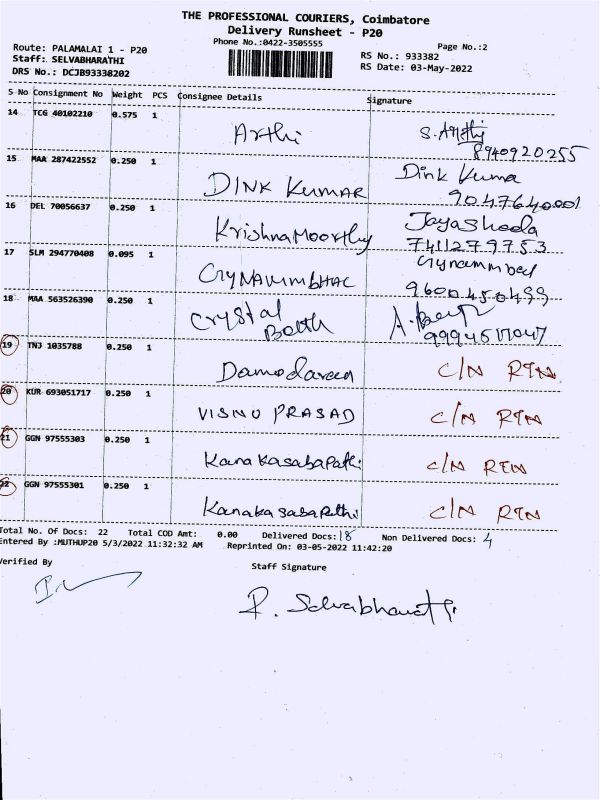 THE PROFESSIONAL COURIERS, Coimbatore
Delivery Runsheet - P20
Phone No.:0422-3505555
Page No.:2
Route: PALAMALAI 1 - P20
Staff: SELVABHARATHI
DRS No.: DCJB93338202
RS No.: 933382
RS Date: 03-May-2022
S No Consignment No Weight PCS Consignee Details Signature
14 TCG 40102210 0.575 1 Arthi S. Arthi
8940920255
15 MAA 287422552 0.250 1 DINK KUMAR Dink Kuma
9047640001
16 DEL 70056637 0.250 1 Krishna Moorthy Jayashoda
7411279753
17 SLM 294770408 0.095 1
9600450499
18 MAA 563526390 0.250 1 Crystal
19 TNJ 1035788 0.250 1 Damodaren C/N RTN
20 KUR 693051717 0.250 1 VISNU PRASAD C/N RTN
21 GGN 97555303 0.250 1 Kanakasabapathi C/N RTN
22 GGN 97555301 0.250 1 Kanakasabapathi C/N RTN
Total No. Of Docs: 22 Total COD Amt: 0.00 Delivered Docs: 18 Non Delivered Docs: 4
Entered By :MUTHUP20 5/3/2022 11:32:32 AM Reprinted On: 03-05-2022 11:42:20
Verified By
Staff Signature
P. Selvabharathi